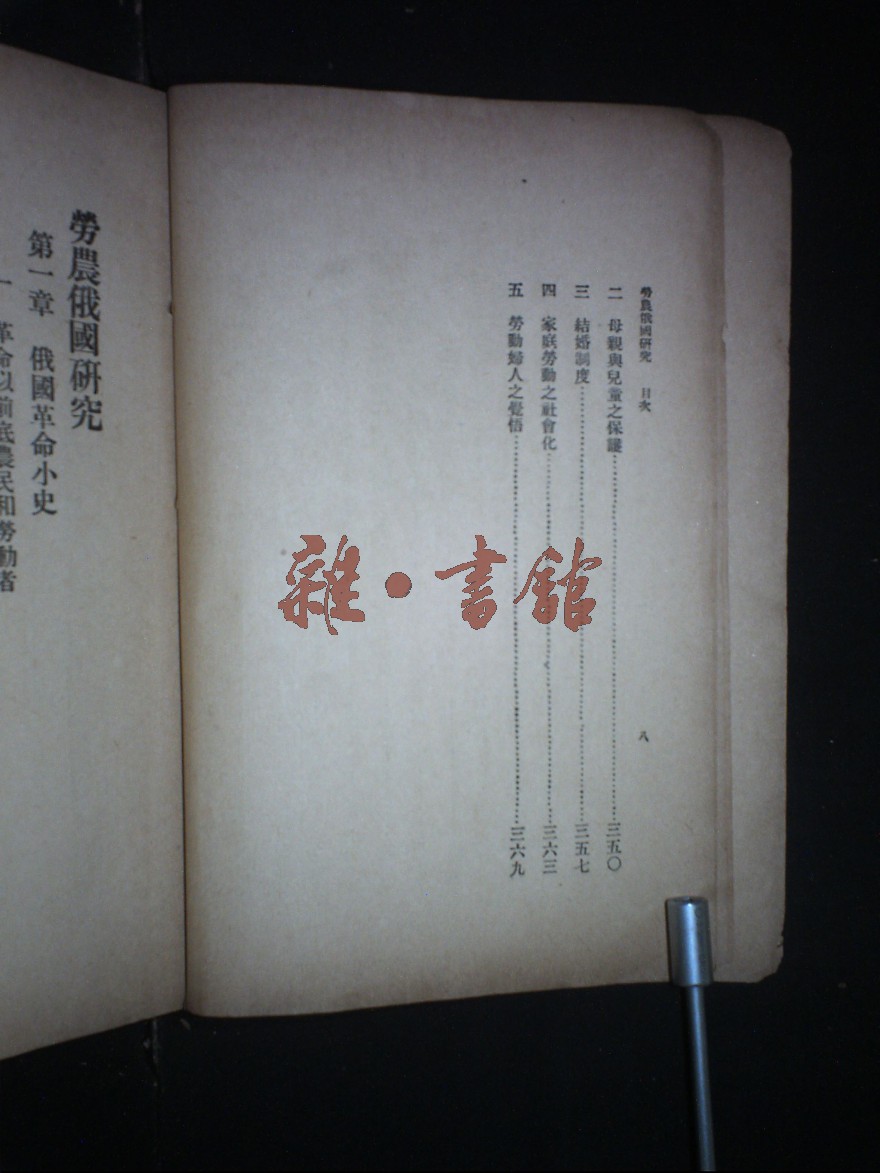 勞農俄國研究 目次 八
二 母親與兒童之保護 三五〇
三 結婚制度 三五七
四 家庭勞動之社會化 三六三
五 勞動婦人之覺悟 三六九
勞農俄國研究
第一章 俄國革命小史
一 革命以前底農民和勞動者
雜·書館